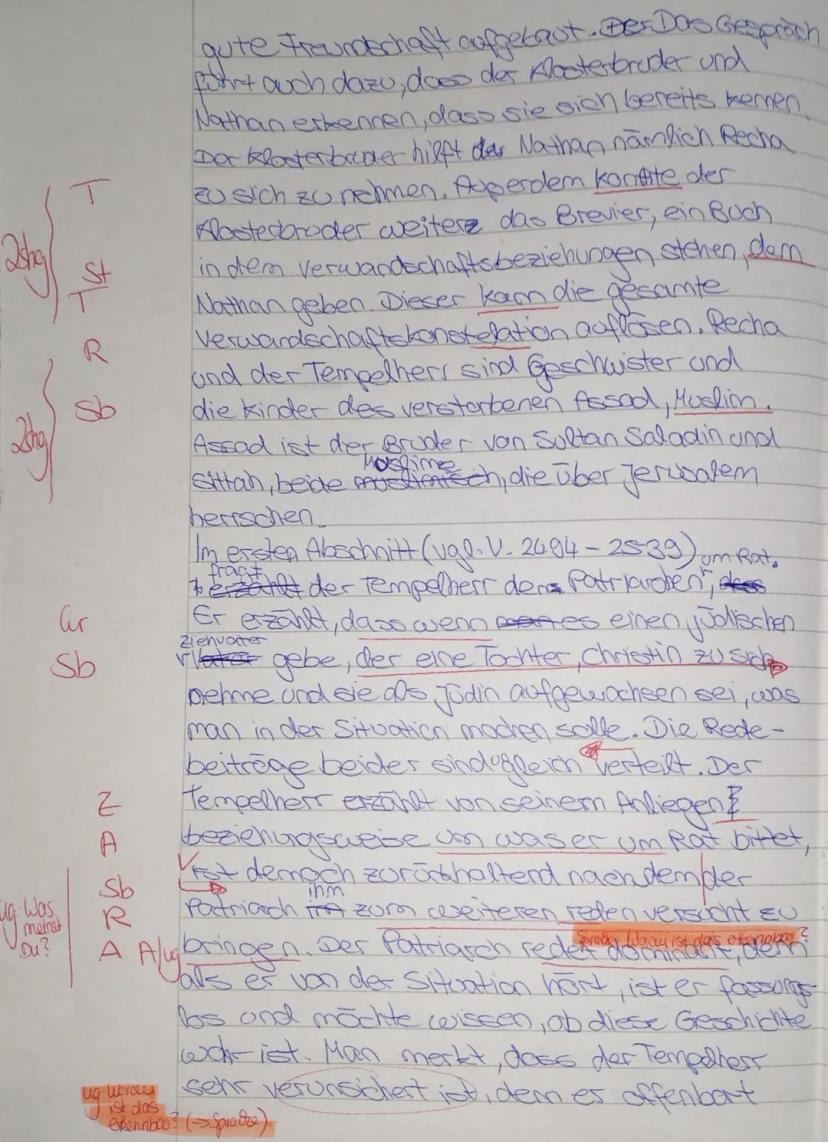 gute Freundschaft aufgebaut. Der Das Gespräch
führt auch dazu, dass der Klosterbruder und
Nathan erkennen, dass sie sich bereits kennen.
Der Klosterbruder hilft der Nathan nämlich Recha
T zu sich zu nehmen. Außerdem konnte der
Klosterbruder weitere das Brevier, ein Buch
St in dem Verwandschaftsbeziehungen stehen, dem
T Nathan geben. Dieser kann die gesamte
Verwandschaftskonstelation auflösen. Recha
R und der Tempelherr sind Geschwister und
Sb die Kinder des verstorbenen Assad, Muslim.
Assad ist der Bruder von Sultan Saladin und
Muslime
Sittah, beide muslimisch, die über Jerusalem
herrschen.
Im ersten Abschnitt (vgl. V. 2494 - 2539) um Rat.
fragt
erzählt der Tempelherr den Patriarchen, dass
Gr Er erzählt, dass wenn es einen jüdischen
Ziehvater
Sb Vater gebe, der eine Tochter, Christin zu sich
nehme und sie als Jüdin aufgewachsen sei, was
man in der Situation machen solle. Die Rede-
beiträge beider sind gleich verteilt. Der
Z Tempelherr erzählt von seinem Anliegen
A beziehungsweise um was er um Rat bittet,
ist demnach zurückhaltend nachdem der
Sb ihm
ug. Was meinst Du? R Patriarch zum weiteren reden versucht zu
Sprache Woran ist das erkennbar?
A A/ug bringen. Der Patriarch redet dominant, denn
als er von der Situation hört, ist er fassungs-
los und möchte wissen, ob diese Geschichte
wahr ist. Man merkt, dass der Tempelherr
sehr verunsichert ist, denn er offenbart
ug. Woran
ist das
erkennbar? (→ Sprache)